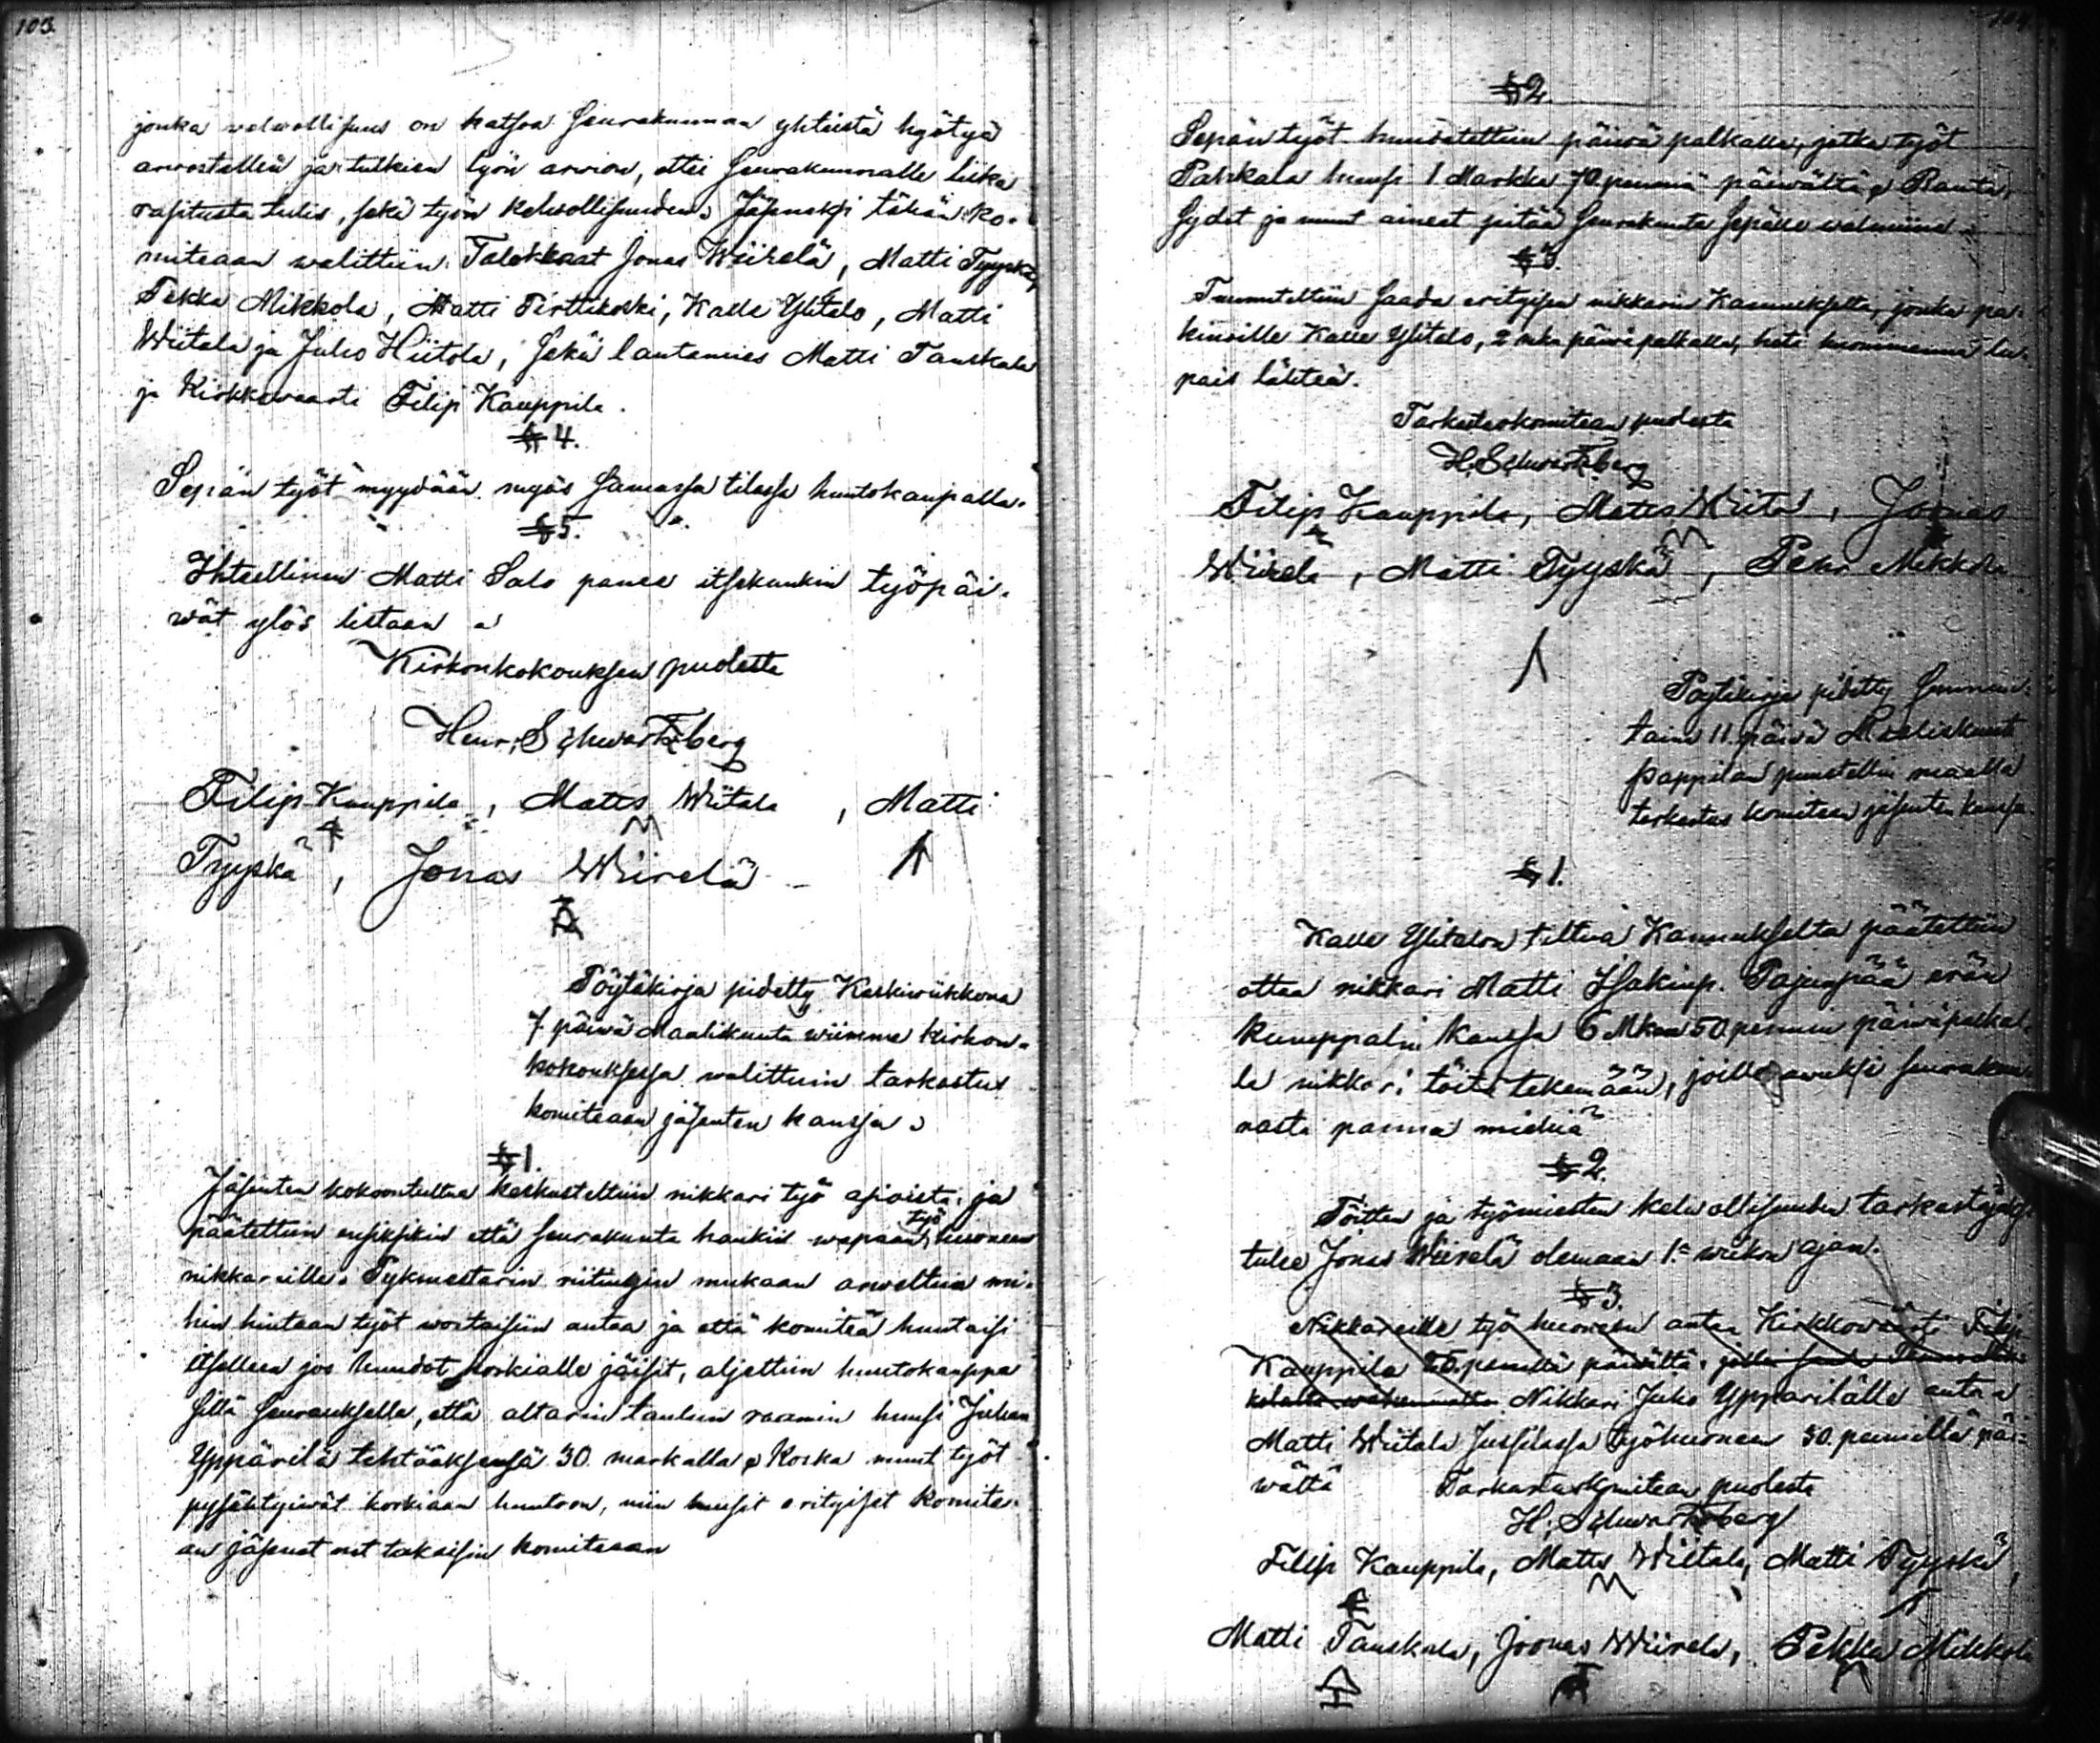 103.
jonka welwollisuus on katsoa seurakunnan yhteistä hyötyä
arwostellen ja tutkien työn arwion, ettei seurakunnalle liika
rasitusta tulis, sekä työn kelwollisuuden. Jäseneksi tähän ko-
miteaan walittiin Talokkaat Jonas Wiirelä, Matti Tyyskä,
Pekka Mikkola, Matti Perttikoski, Kalle Ylitalo, Matti
Wiitala ja Juho Hiitola, sekä lautamies Matti Tanskala
ja Kirkkowaarti Filip Kauppila.
§ 4.
Sepän työt myydään myös samassa tilassa huutokaupalla.
§ 5.
Ihteellinen Matti Salo panee itsekunkin työpäi-
wät ylös listaan
Kirkonkokouksen puolesta
Henr. Schwartzberg
Filip Kauppila, Matts Wiitala, Matti
Tyyskä, Jonas Wiirelä
Pöytäkirja pidetty Keskiwiikkona
7 päiwä Maalikuuta wiimme kirkon-
kokouksessa walittuin tarkastus
komiteaan jäsenten kanssa
§ 1.
Jäsenten kokoontultua keskusteltiin nikkari työ asioista ja
päätettiin ensiksikin että seurakunta hankii wapaan työ huoneen
nikkareille. Pykmestarin riitingin mukaan arweltiin mi-
hin hintaan työt woitaisiin antaa ja että komiteä huutaisi
itselleen jos huudot korkialle jäisit, aljettiin huutokauppa
sillä seurauksella, että altarin taulun raamin huusi Juhan
Yppärilä tehtääksensä 30 markalla Koska muut työt
pysähtyiwät korkiaan huutoon, niin huusit erityiset komite-
an jäsenet net takaisin komiteaan
§ 2
Sepän työt huudatettiin päiwä palkalla, jotka työt
Pahkala huusi 1 Markka 70 penniä päiwältä Rauta,
sydet ja muut ainest pitää seurakunta sepälle walmiina
§ 3.
Tuumiteltiin saada erityisen nikkarin Kannukselta, jonka pa-
kinoille Kalle Ylitalo, 2 mka päiwäpalkalla, heti huomenna lu-
pais lähteä.
Tarkastuskomitean puolesta
H. Schwartzberg
Filip Kauppila, Matts Wiital, Joonas
Wiirelä, Matti Tyyskä, Pekr Mikkola
Pöytäkirja pidetty Sunnun-
taina 11 päiwä Maaliskuuta
pappilan puustellin maalla
tarkastus komitean jäsenten kanssa
§ 1.
Kalle Ylitalon tultua Kannukselta päätettiin
ottaa nikkari Matti Isakinp. Pajunpää erän
kumppalin kanssa 6 Mkan 50 pennin päiwäpalkal-
la nikkari töitä tekemään, joille awuksi seurakun-
nasta panna miehiä
§ 2.
Töitten ja työmiesten kelwollisuuden tarkastajaksi
tulee Jonas Wiirelä olemaan 1:n wiikon ajan.
§ 3.
Nikkareille työ huoneen antaa Kirkkowaarti Filip
Kauppila 50 pennillä päiwältä,
Nikkari Juho Ypparilälle antaa
Matti Wiitala Jussilassa työhuoneen 30 pennillä päi-
wältä
Tarkastuskomitean puolesta
H. Schwartzberg
Filip Kauppila, Matts Wiitala, Matti Tyyskä,
Matti Tanskala, Joonas Wiirelä, Pekka Mikkola